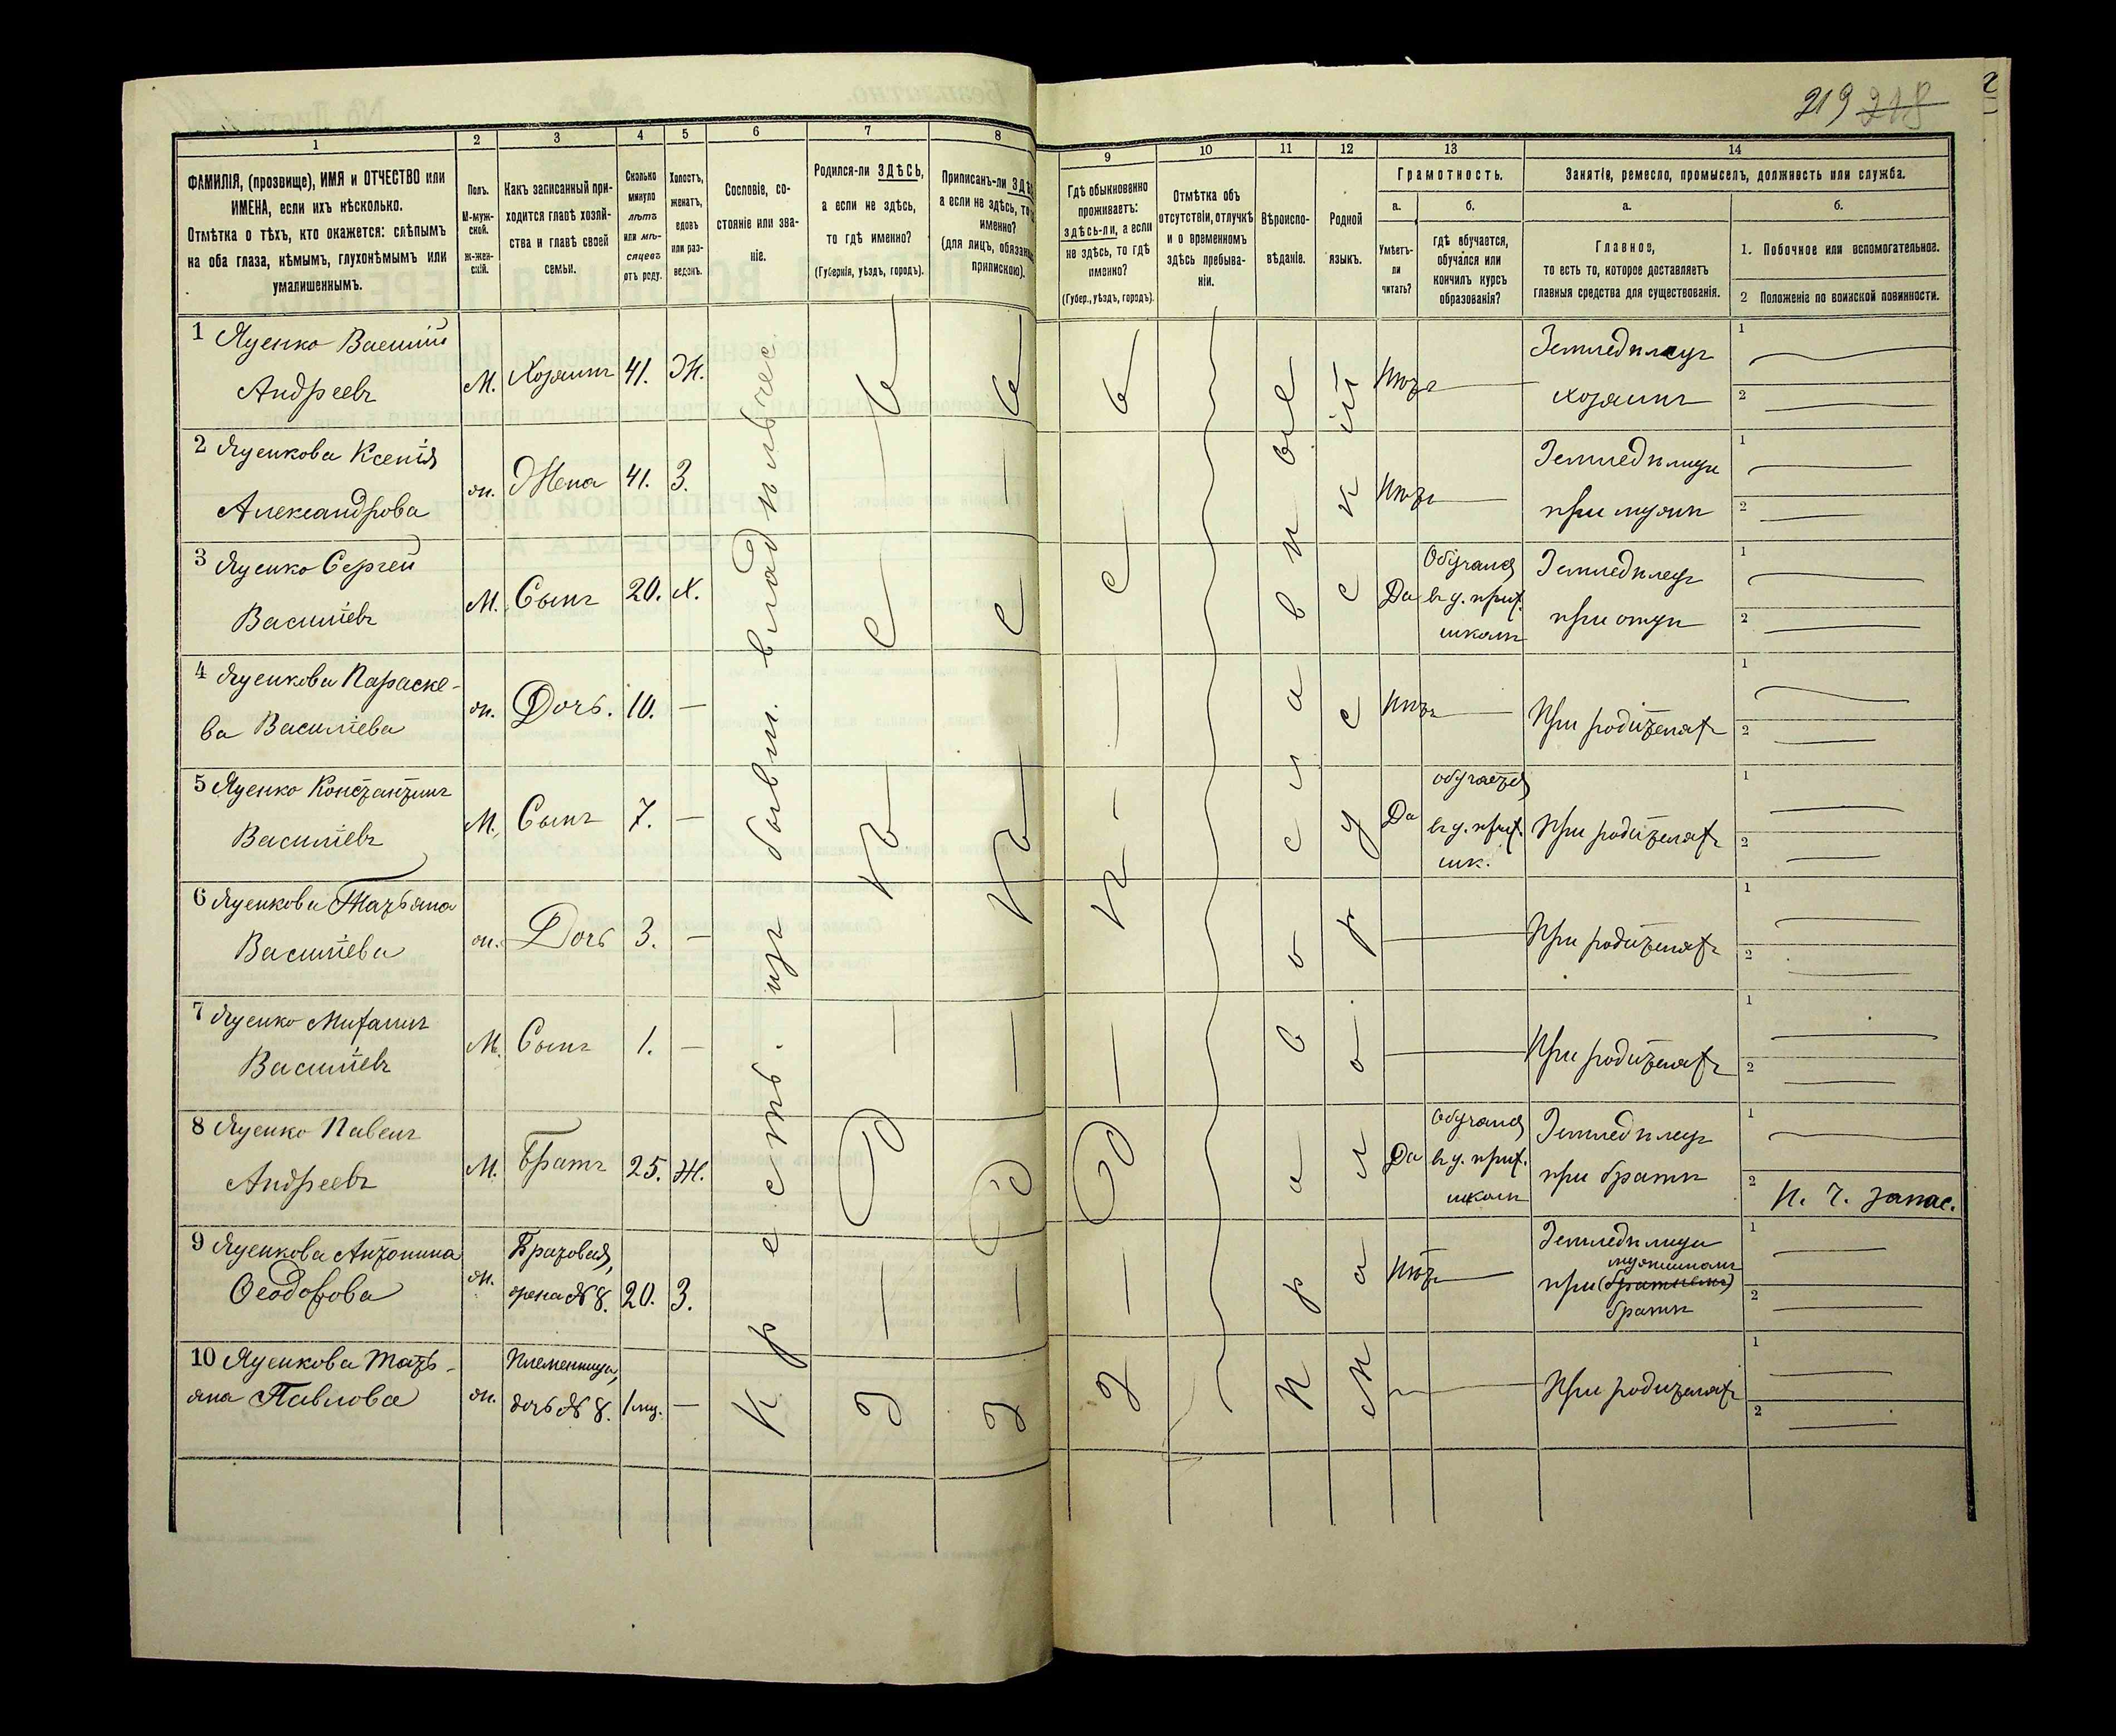 219 218
1
2
3
4
5
6
7
8
9
10
11
12
13
14
ФАМИЛІЯ, (прозвище), ИМЯ и ОТЧЕСТВО или
ИМЕНА, если ихъ нѣсколько.
Отмѣтка о тѣхъ, кто окажется: слѣпымъ
на оба глаза, нѣмымъ, глухонѣмымъ или
умалишеннымъ.
Полъ.
М-муж-
ской.
Ж-жен-
скій.
Какъ записанный при-
ходится главѣ хозяй-
ства и главѣ своей
семьи.
Сколько
минуло
лѣтъ
или мѣ-
сяцевъ
отъ роду.
Холостъ,
женатъ,
вдовъ
или раз-
веденъ.
Сословіе, со-
стояніе или зва-
ніе.
Родился-ли ЗДѢСЬ,
а если не здѣсь,
то гдѣ именно?
(Губернія, уѣздъ, городъ).
Приписанъ-ли
а если не здѣсь,
именно?
(для лицъ,
припискою).
Гдѣ обыкновенно
проживаетъ:
здѣсь-ли, а если
не здѣсь, то гдѣ
именно?
(Губер., уѣздъ, городъ).
Отмѣтка объ
отсутствіи, отлучкѣ
и о временномъ
здѣсь пребыва-
ніи.
Вѣроиспо-
вѣданіе.
Родной
языкъ.
Грамотность.
а.
Умѣетъ-
ли
читать?
б.
гдѣ обучается,
обучался или
кончилъ курсъ
образованія?
Занятіе, ремесло, промыселъ, должность или служба.
а.
Главное,
то есть то, которое доставляетъ
главныя средства для существованія.
б.
1. Побочное или вспомогательное.
2 Положеніе по воинской повинности.
крест. изъ бывш. владѣльчес.
Гдѣ
Гдѣ
Гдѣ
Православное
Малорусскій
1 Яценко Василій
Андреевъ
М. Хозяинъ 41. Ж.
Нѣтъ
Земледѣлецъ
хозяинъ
1
2
2 Яценкова Ксенія
Александрова
ж. Жена 41. З.
Нѣтъ
Земледѣлица
при мужѣ
1
2
3 Яценко Сергей
Василіевъ
М. Сынъ 20. Х.
Да
Обучался
въ ц. прих.
школѣ
Земледѣлецъ
при отцѣ
1
2
4 Яценкова Параске-
ва Василіева
ж. Дочь. 10. —
Нѣтъ
При родителяхъ
1
2
5 Яценко Константинъ
Василіевъ
М. Сынъ 7. —
Да
обучается
въ ц. прих.
шк.
При родителяхъ
1
2
6 Яценкова Татьяна
Василіева
ж. Дочь 3. —
При родителяхъ
1
2
7 Яценко Михаилъ
Василіевъ
М. Сынъ 1. —
При родителяхъ
1
2
8 Яценко Павелъ
Андреевъ
М. Братъ 25. Ж.
Да
Обучался
въ ц. прих.
школѣ
Земледѣлецъ
при братѣ
1
2 Н. Ч. запас.
9 Яценкова Антонина
Ѳеодорова
ж. Братовая,
жена № 8. 20. З.
Нѣтъ
Земледѣлица
при
братѣ
1
2
10 Яценкова Тать-
яна Павлова
ж. Племенница,
дочь № 8. 1 мц. —
При родителяхъ
1
2